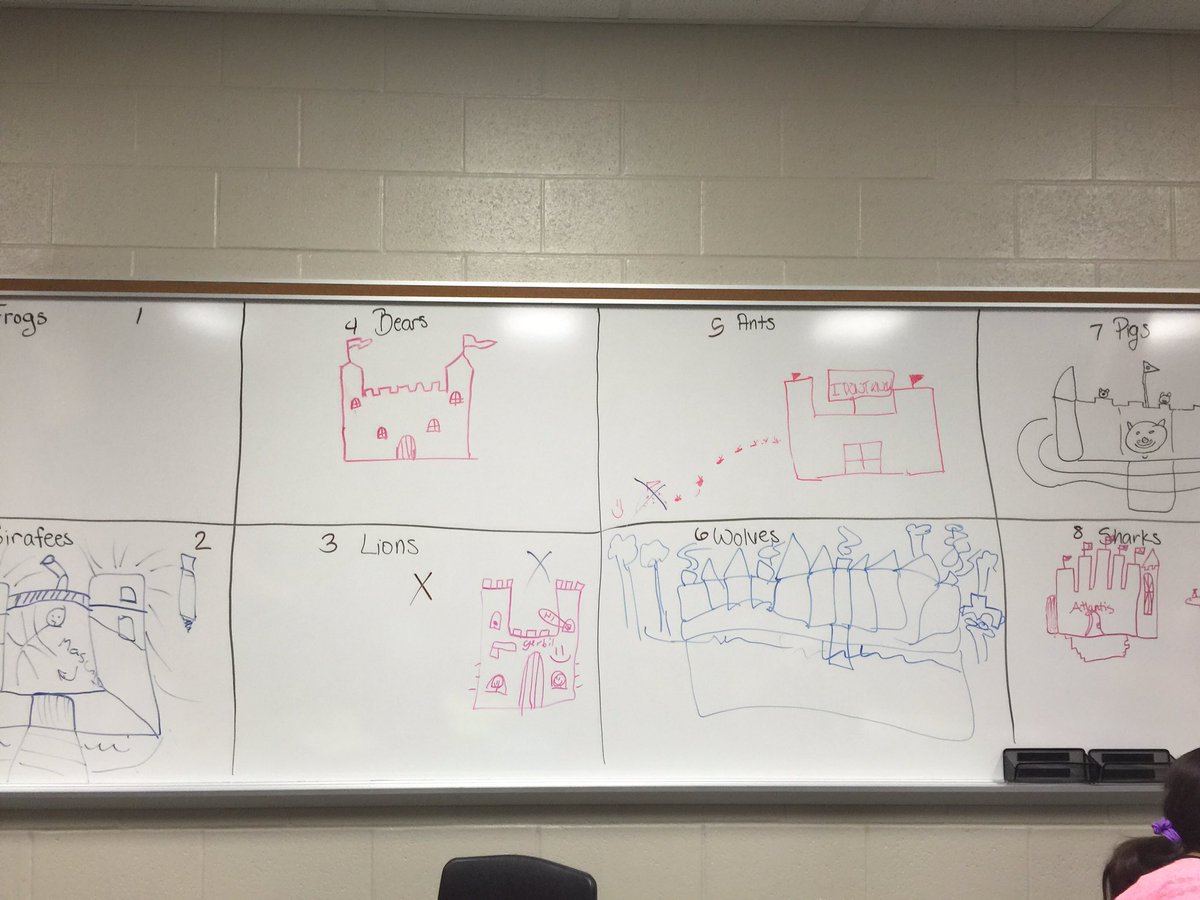 Frogs 1
4 Bears
5 Ants
7 Pigs
Girafees 2
3 Lions
X
gerbil
6 Wolves
8 Sharks
Atlantis